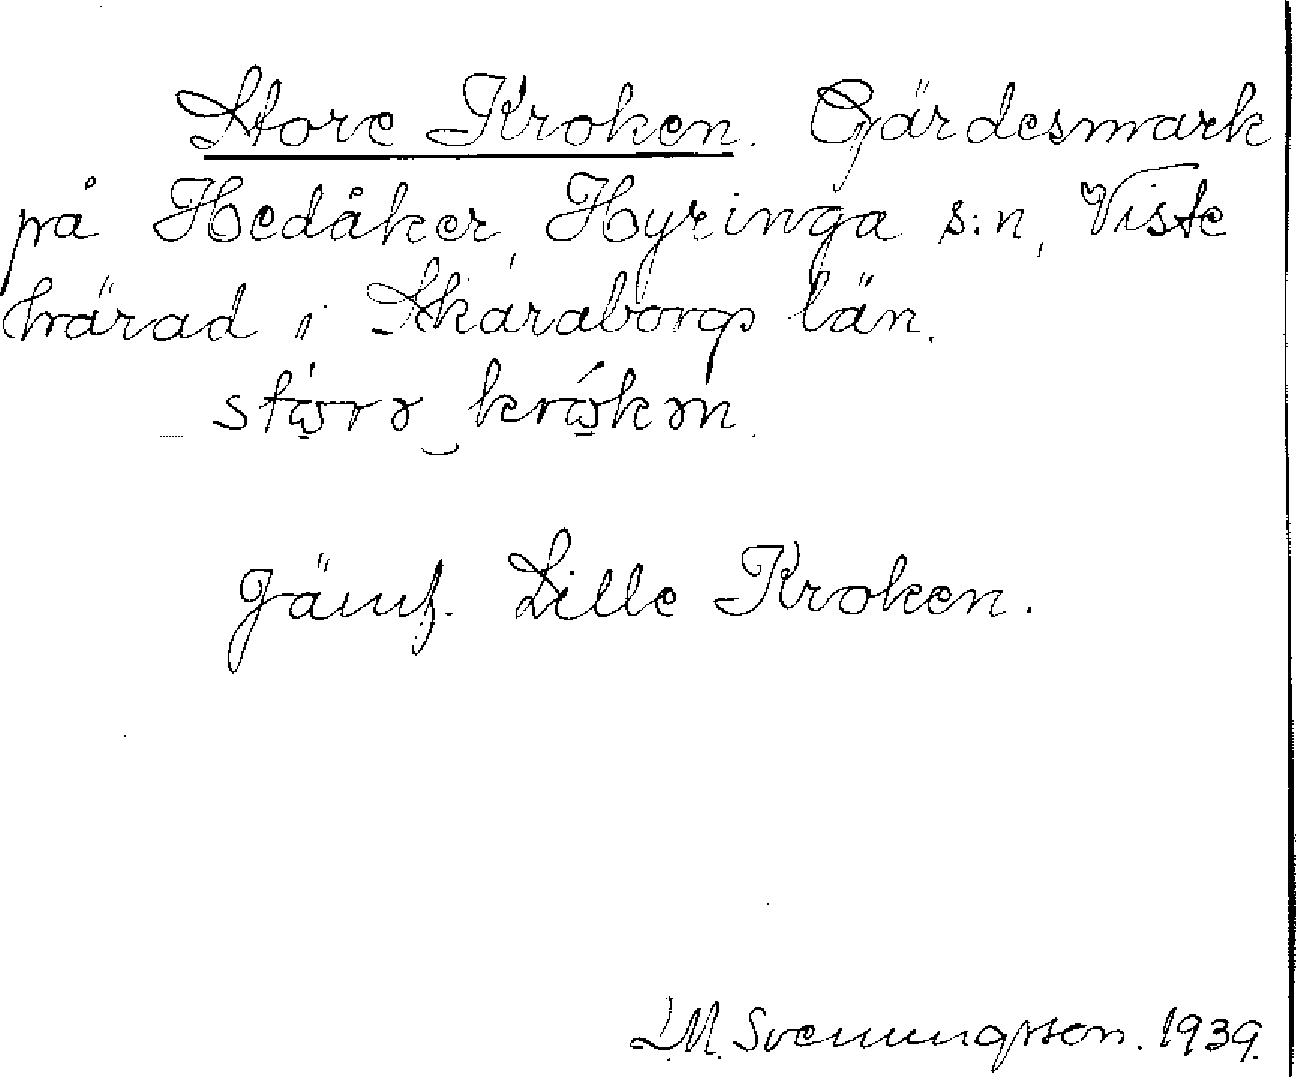 Store Kroken. Gärdesmark
på Hedåker, Hyringa s:n, Viste
härad i Skaraborgs län.
Jämf. Lille Kroken.
L.M. Svenungsson. 1939.